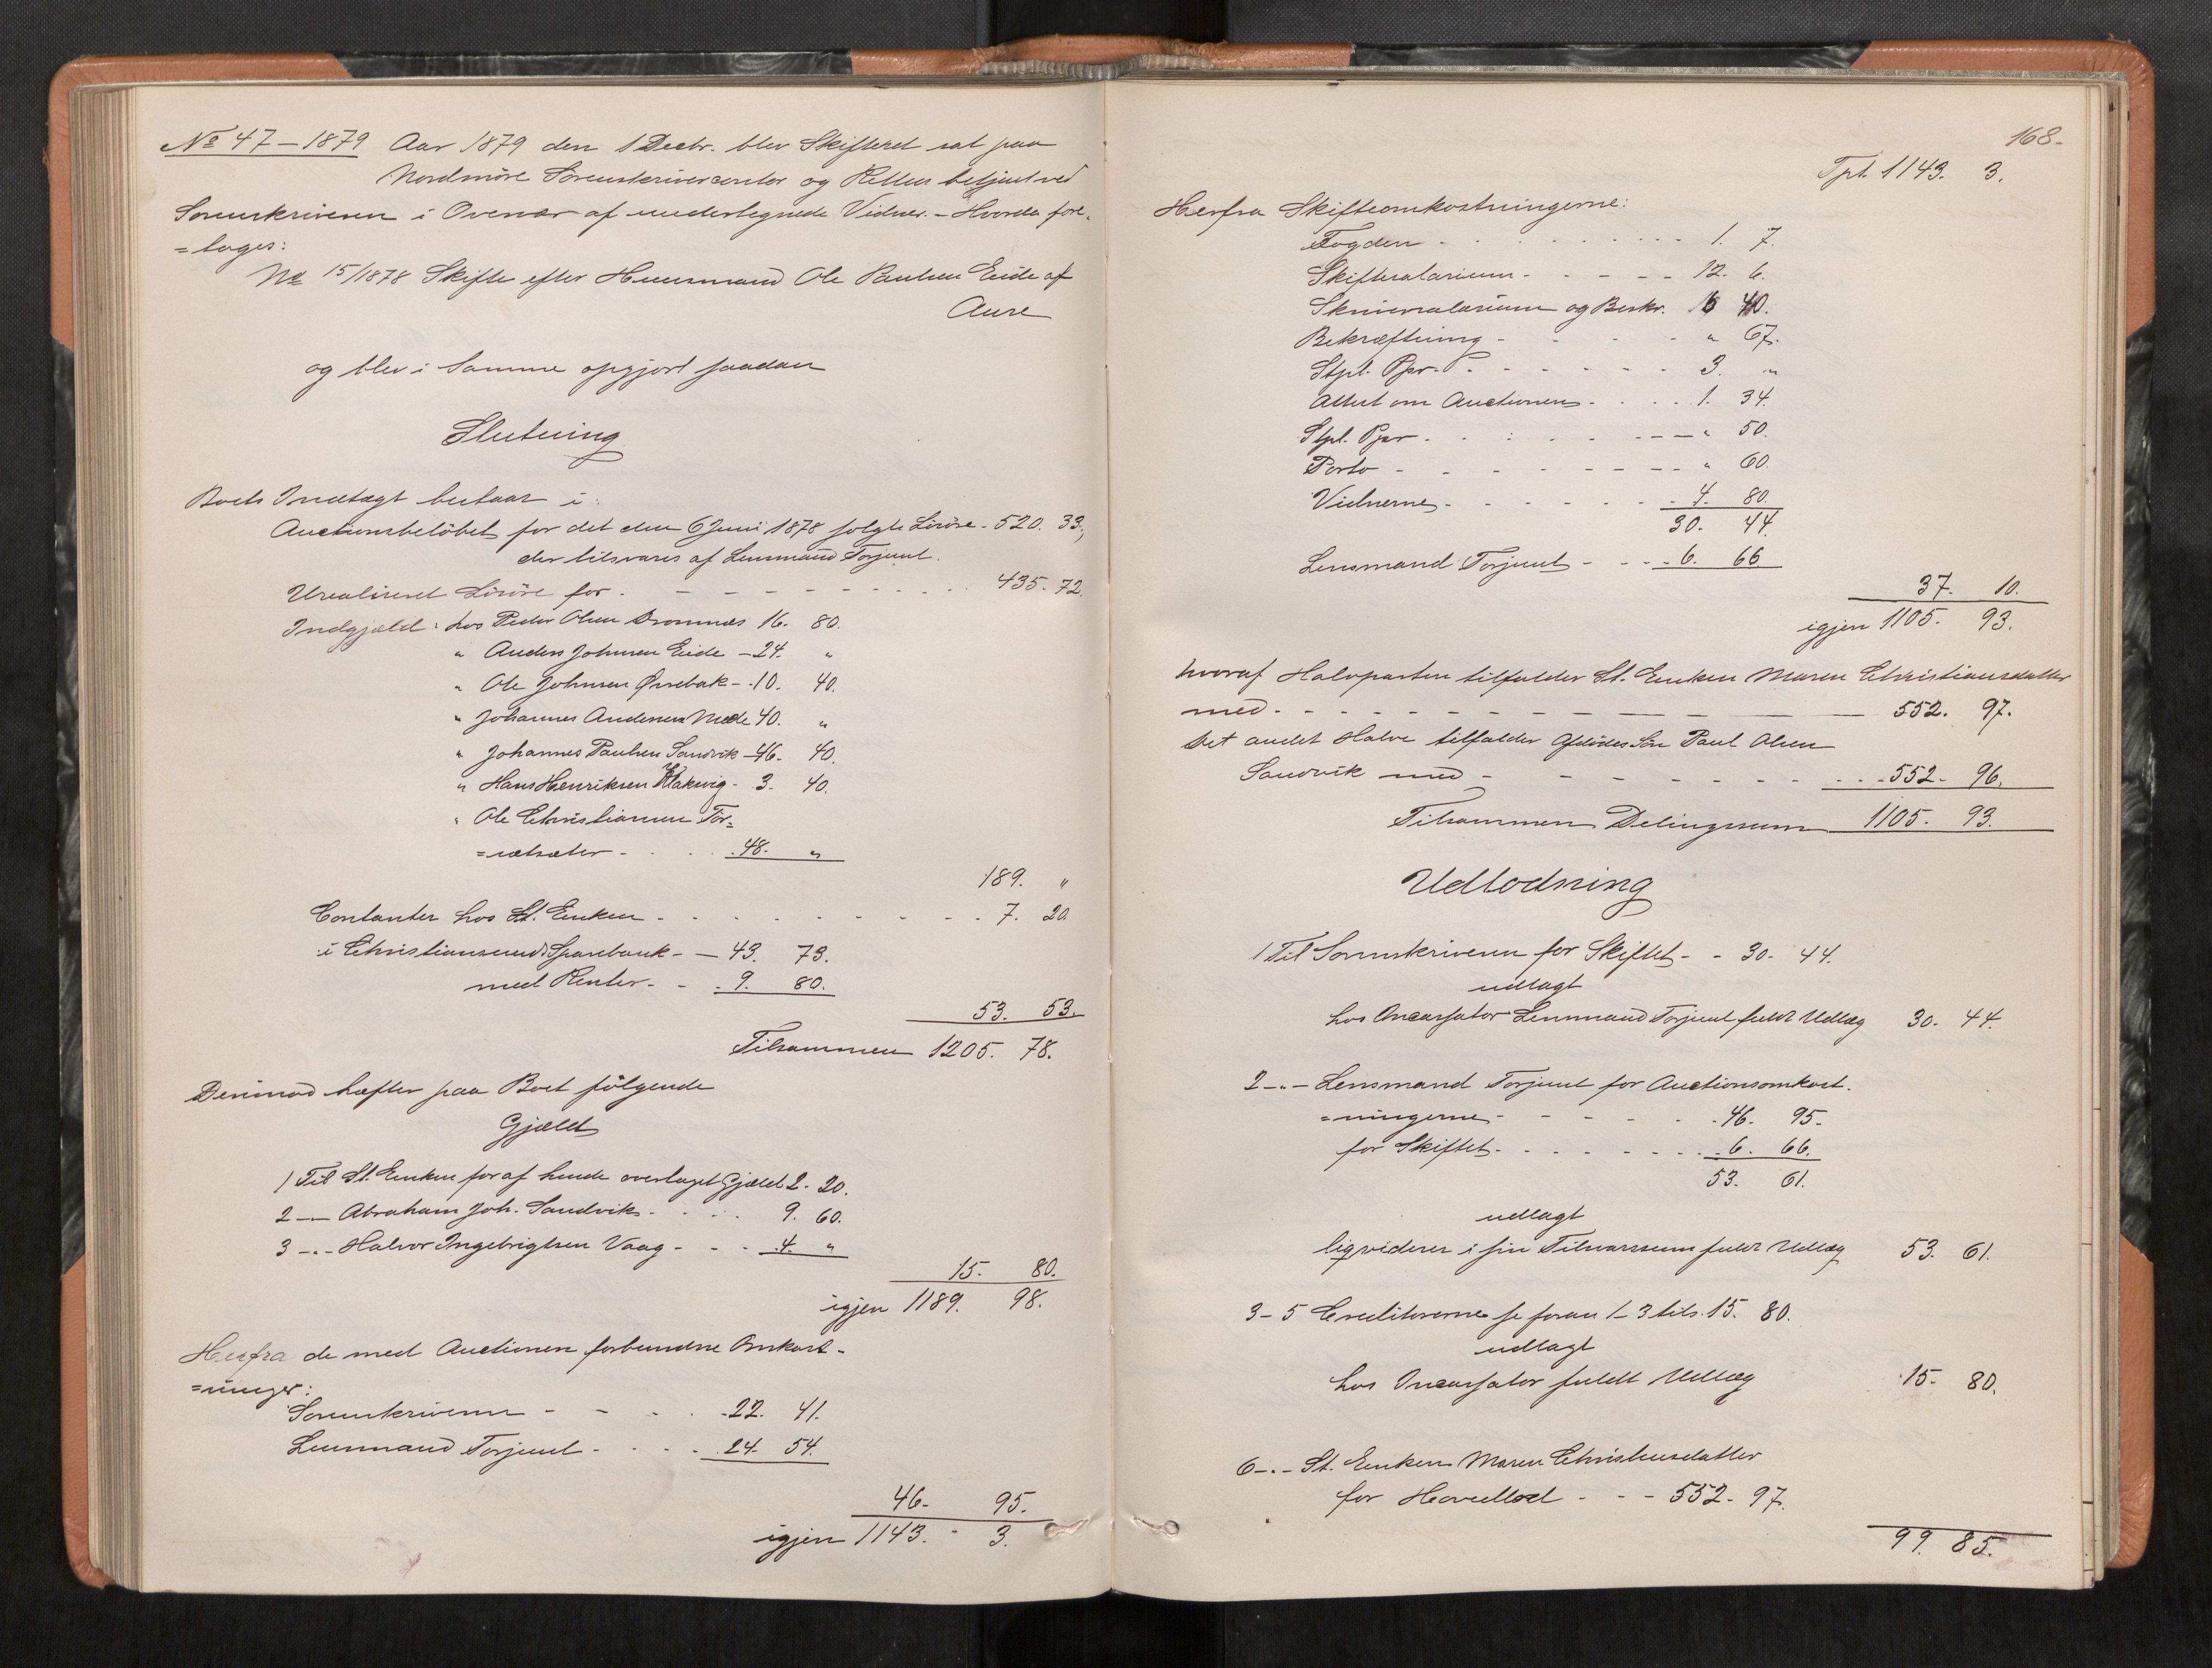 No 47 – 1879 Aar 1879 den 1 Decbr. blev Skifteret sat paa
Nordmöre Sorenskrivercontor og Retten betjent ved
Sorenskriveren i Overvær af undertegnede Vidner. – Hvorda fore-
=toges:
No 15/1878 Skifte efter Huusmand Ole Paulsen Eide af
Aure
og blev i Samme opgjort saadan
Slutning
Boets Indtægt bestaar i:
Auctionsbelöbet for det den 6 Juni 1878 solgte Lösöre - 520. 33,
der tilsvares af Lensmand Torjuul.
Urealiseret Lösöre for - - - - 435. 72.
Indgjæld: hos Peder Olsen Dromnæs 16. 80.
" Anders Johnsen Eide - 24. "
" Ole Johnsen Ørsebak - 10. 40.
" Johannes Andersen Mæle 40. "
" Johannes Paulsen Sandvik - 46. 40.
" Hans Henriksen Klakvig - 3. 40.
" Ole Christiansen Tör=
=sætsæter - . . 48. "
189. "
Contanter hos St. Enken - - - - 7. 20.
i Christianssunds Sparebank - - 43. 73.
med Renter - - 9. 80.
53. 53.
Tilsammen 1205. 78.
Derimod hæfter paa Boet fölgende
Gjæld
1 Til St. Enken for af hende overtaget Gjæld 2. 20.
2 -"- Abraham Joh. Sandvik - . . 9. 60.
3 -"- Halvor Ingebrigtsen Vaag - - - 4. "
15. 80.
igjen 1189. 98.
Herfra de med Auctionen forbundne Omkost-
=ninger:
Sorenskriveren - - . . 22. 41.
Lensmand Torjuul - . . . 24. 54.
46. 95.
igjen 1143. - 3.
168.
Tpt. 1143. 3.
Herfra Skifteomkostningerne:
Fogden - . . . 1. 7.
Skiftesalarium - - - - 12. 6.
Skriversalarium og Beskr. 6 40.
Bekræftning - - - " 67.
Stpl. Ppr. - - - - 3. "
Attest om Auctionen - . . 1. 34.
Stpl. Ppr - . . . " 50.
Porto - - - - " 60.
Vidnerne - - - - 4. 80.
30. 44.
Lensmand Torjuul - - - 6. 66
37. 10.
igjen 1105. 93.
hvoraf Halvparten tilfalder St. Enken Maren Christiansdatter
med - - - - - 552. 97.
Det andet Halve tilfalder Afdödes Sön Paul Olsen
Sandvik med - - - - - 552. 96.
Tilsammen Delingssum 1105. 93.
Udlodning
1 Til Sorenskriveren for Skiftet - - 30. 44.
udlagt
hos Incassator Lensmand Torjuul fuldt Udlæg 30. 44.
2 -"- Lensmand Torjuul for Auctionsomkost.
=ningerne - - - - 46. 95.
for Skiftet - - - - 6. 66.
53. 61.
udlagt
liqviderer i sin Tilsvarssum fuldt Udlæg 53. 61.
3 - 5 Creditorerne se foran 1 - 3 tils. 15. 80.
udlagt
hos Incassator fuldt Udlæg 15. 80.
6 -"- St. Enken Maren Christiansdatter
for Hovedlod - - - 552. 97.
99. 85.